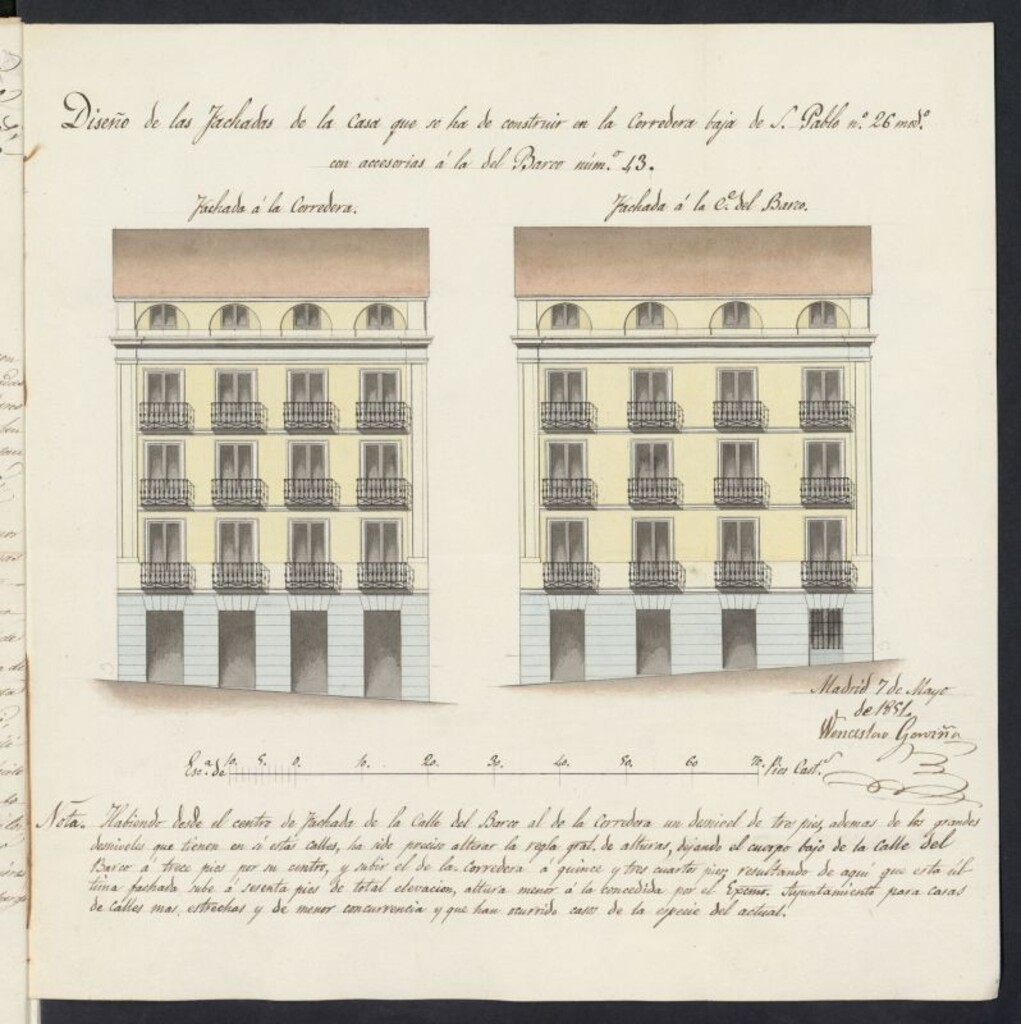 Diseño de las Fachadas de la Casa que se ha de construir en la Corredera baja de S. Pablo n.º 26 mod.º
con accesorias á la del Barco núm.º 43.
Fachada á la Corredera.
Fachada á la C.e del Barco.
Madrid 7 de Mayo
de 1851
Wenceslao Gaviña
Esc.a de 10. 5. 0. 10. 20. 30. 40. 50. 60 70. Pies Cast.s
Nota. Habiendo desde el centro de Fachada de la Calle del Barco al de la Corredera un desnivel de tres pies, ademas de los grandes
desniveles que tienen en si estas calles, ha sido preciso alterar la regla gral. de alturas, dejando el cuerpo bajo de la Calle del
Barco á trece pies por su centro, y subir el de la Corredera á quince y tres cuartos pies, resultando de aqui que esta úl
tima fachada sube á sesenta pies de total elevacion, altura menor á la concedida por el Excmo. Ayuntamiento para casas
de calles mas estrechas y de menor concurrencia y que han ocurrido casos de la especie del actual.